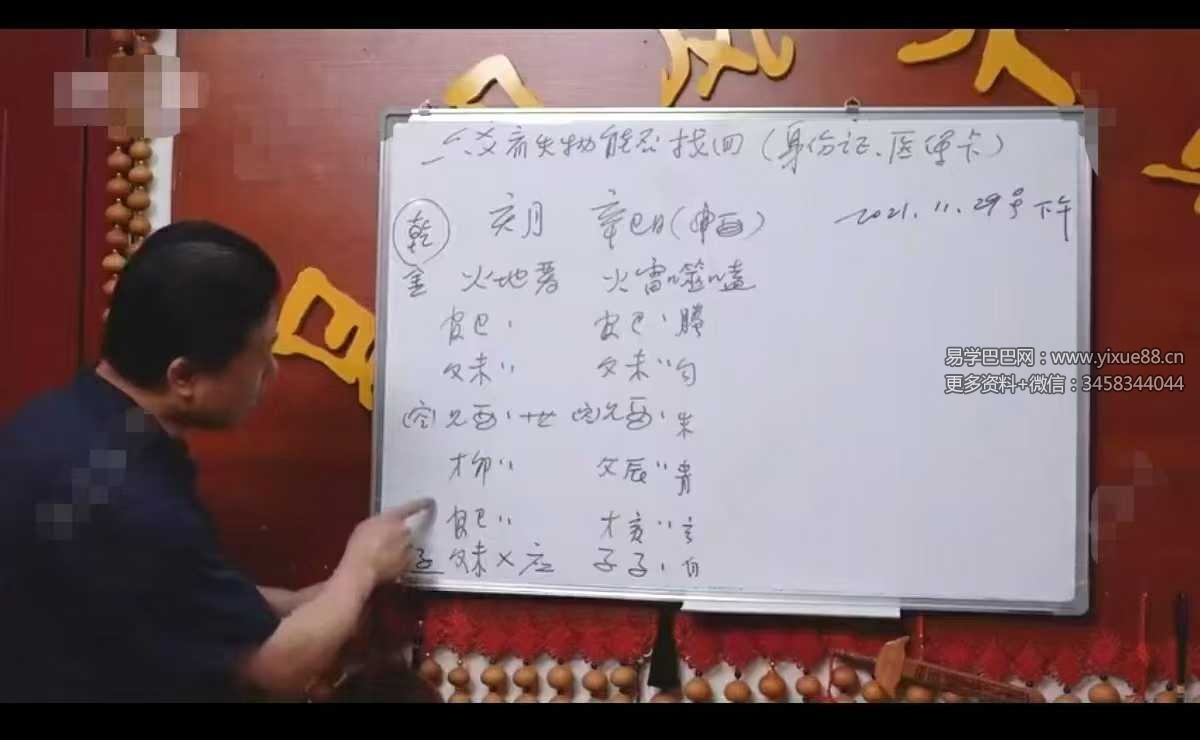 六爻看失物能否找回（身份证、医保卡）
2021.11.29号下午
乾 亥月 辛巳日（申酉）
金 火地晋 火雷噬嗑
官巳、 官巳、腾
父未〃 父未〃勾
(空)兄酉、世 (空)兄酉、朱
才卯〃 父辰〃青
官巳〃 才亥〃玄
子 父未×应 子子、白
易学巴巴网：www.yixue88.cn
更多资料+微信：3458344044